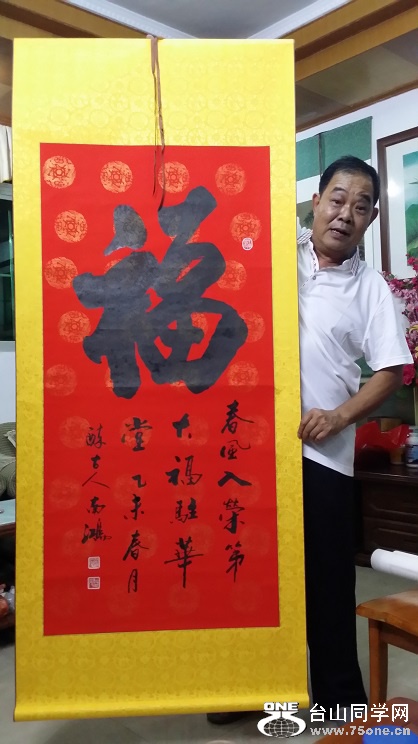 福
春風入榮第
大福駐華
堂乙未春月
醉古人南鴻
ONE
台山同学网
www.75one.cn